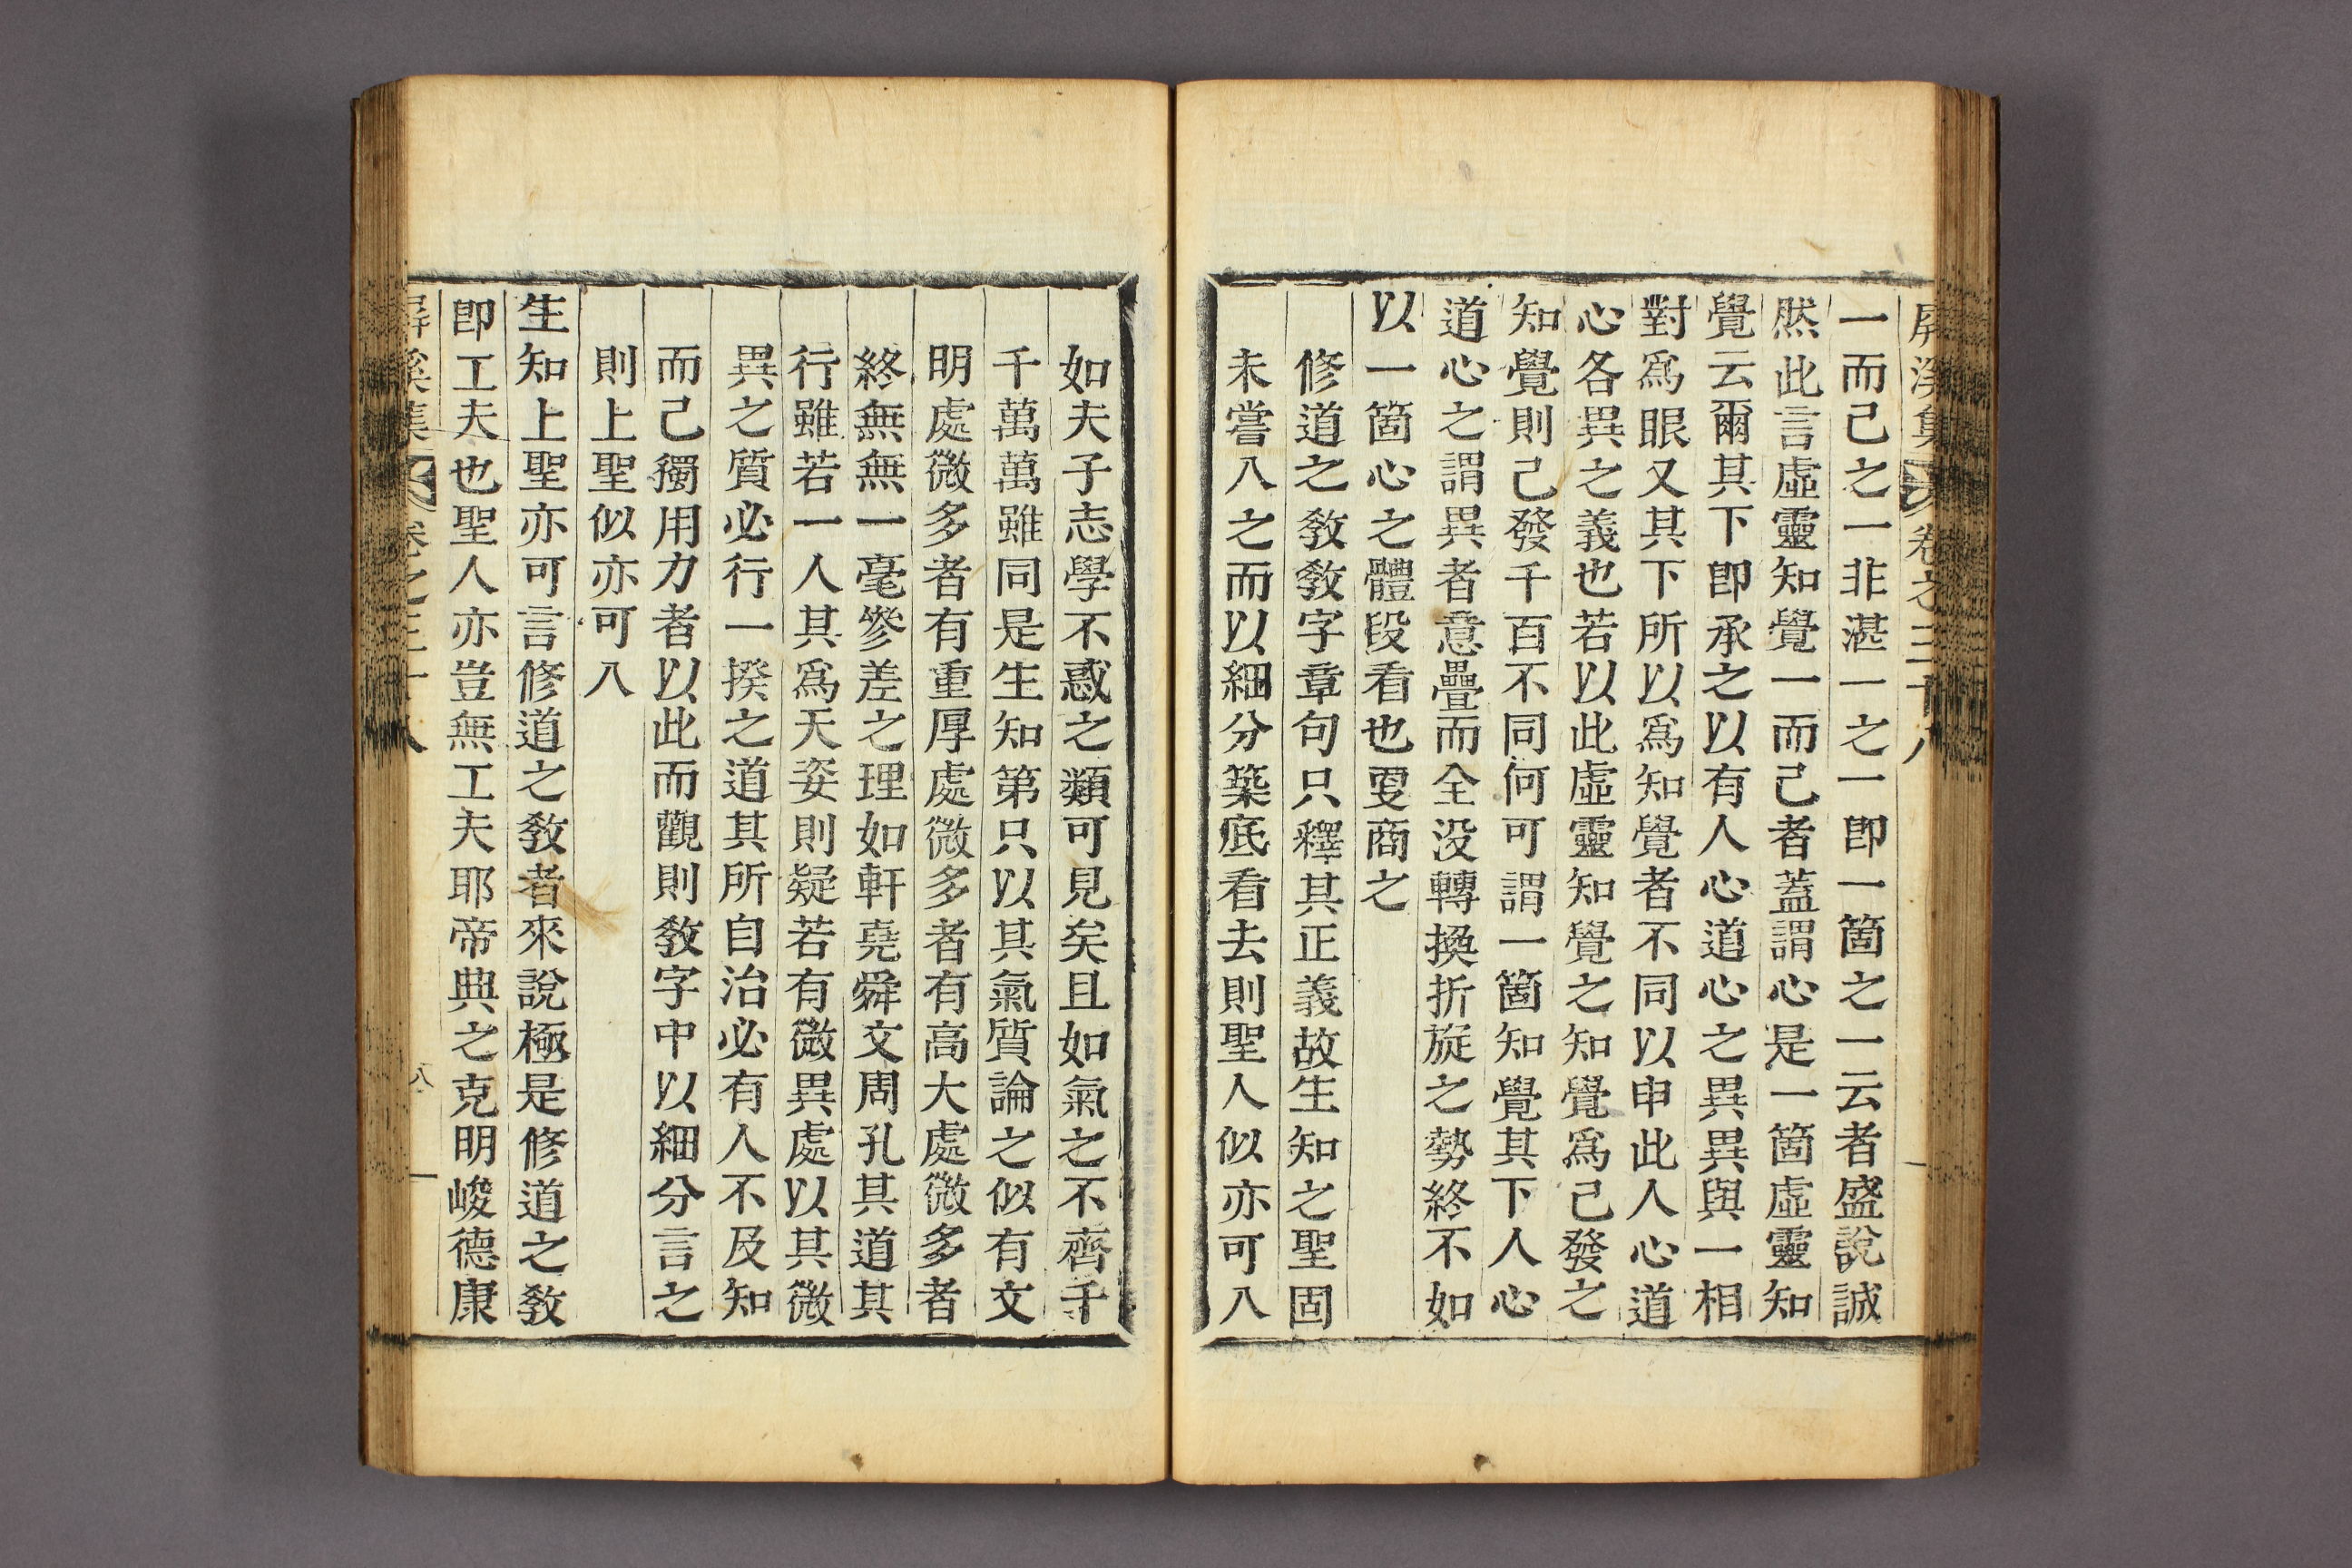 屛溪集 卷之三十八
一而己之一非湛一之一卽一箇之一云者盛說誠
然此言虛靈知覺一而己者蓋謂心是一箇虛靈知
覺云爾其下卽承之以有人心道心之異異與一相
對爲眼又其下所以爲知覺者不同以申此人心道
心各異之義也若以此虛靈知覺之知覺爲己發之
知覺則己發千百不同何可謂一箇知覺其下人心
道心之謂異者意疊而全没轉換折旋之勢終不如
以一箇心之體段看也更商之
修道之敎敎字章句只釋其正義故生知之聖固
未嘗入之而以細分築底看去則聖人似亦可入
如夫子志學不惑之類可見矣且如氣之不齊千
千萬萬雖同是生知第只以其氣質論之似有文
明處微多者有重厚處微多者有高大處微多者
終無無一毫參差之理如軒堯舜文周孔其道其
行雖若一人其爲天姿則疑若有微異處以其微
異之質必行一揆之道其所自治必有人不及知
而己獨用力者以此而觀則敎字中以細分言之
則上聖似亦可入
生知上聖亦可言修道之敎者來說極是修道之敎
卽工夫也聖人亦豈無工夫耶帝典之克明峻德康
屛溪集 卷之三十八 八